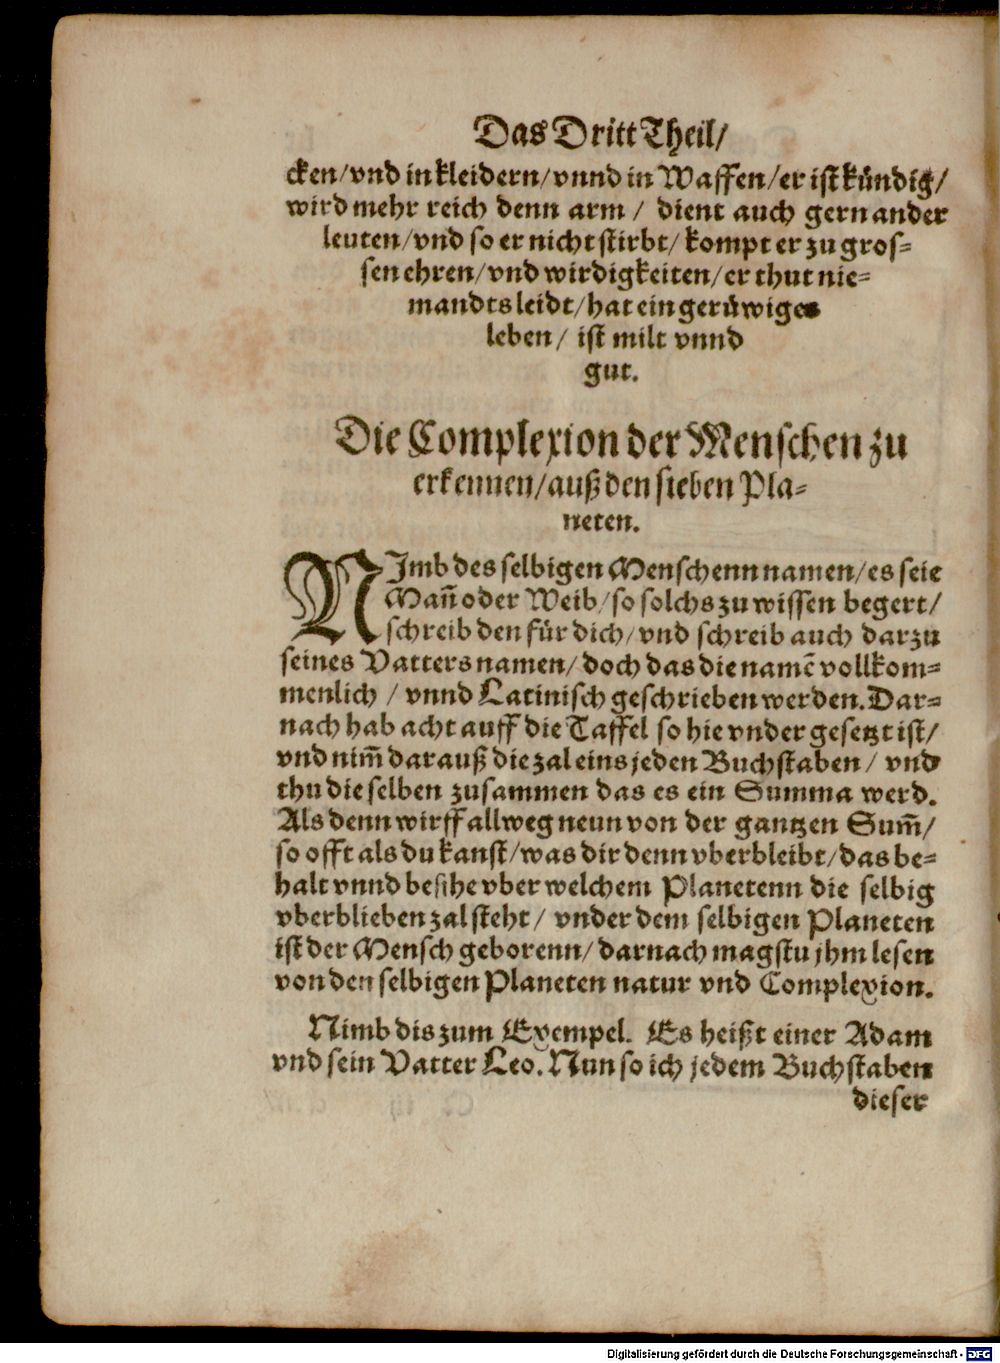 Das Dritt Theil/
cken/vnd in kleidern/vnnd in Waffen/er ist kündig/
wird mehr reich denn arm / dient auch gern ander
leuten/vnd so er nicht stirbt/ kompt er zu gros-
sen ehren/vnd wirdigkeiten/er thut nie-
mandts leidt/hat ein gerüwiges
leben/ ist milt vnnd
gut.
Die Complexion der Menschen zu
erkennen/auß den sieben Pla-
neten.
NImb des selbigen Menschenn namen/es seie
Mañ oder Weib/so solchs zu wissen begert/
schreib den für dich/vnd schreib auch darzu
seines Vatters namen/doch das die namẽ vollkom-
menlich / vnnd Latinisch geschrieben werden. Dar-
nach hab acht auff die Taffel so hie vnder gesetzt ist/
vnd nim̃ darauß die zal eins jeden Buchstaben/ vnd
thu die selben zusammen das es ein Summa werd.
Als denn wirff allweg neun von der gantzen Sum̃/
so offt als du kanst/was dir denn vberbleibt/das be-
halt vnnd besihe vber welchem Planetenn die selbig
vberblieben zal steht/ vnder dem selbigen Planeten
ist der Mensch geborenn/darnach magstu jhm lesen
von den selbigen Planeten natur vnd Complexion.
Nimb dis zum Exempel. Es heißt einer Adam
vnd sein Vatter Leo. Nun so ich jedem Buchstaben
dieser
Digitalisierung gefördert durch die Deutsche Forschungsgemeinschaft - DFG